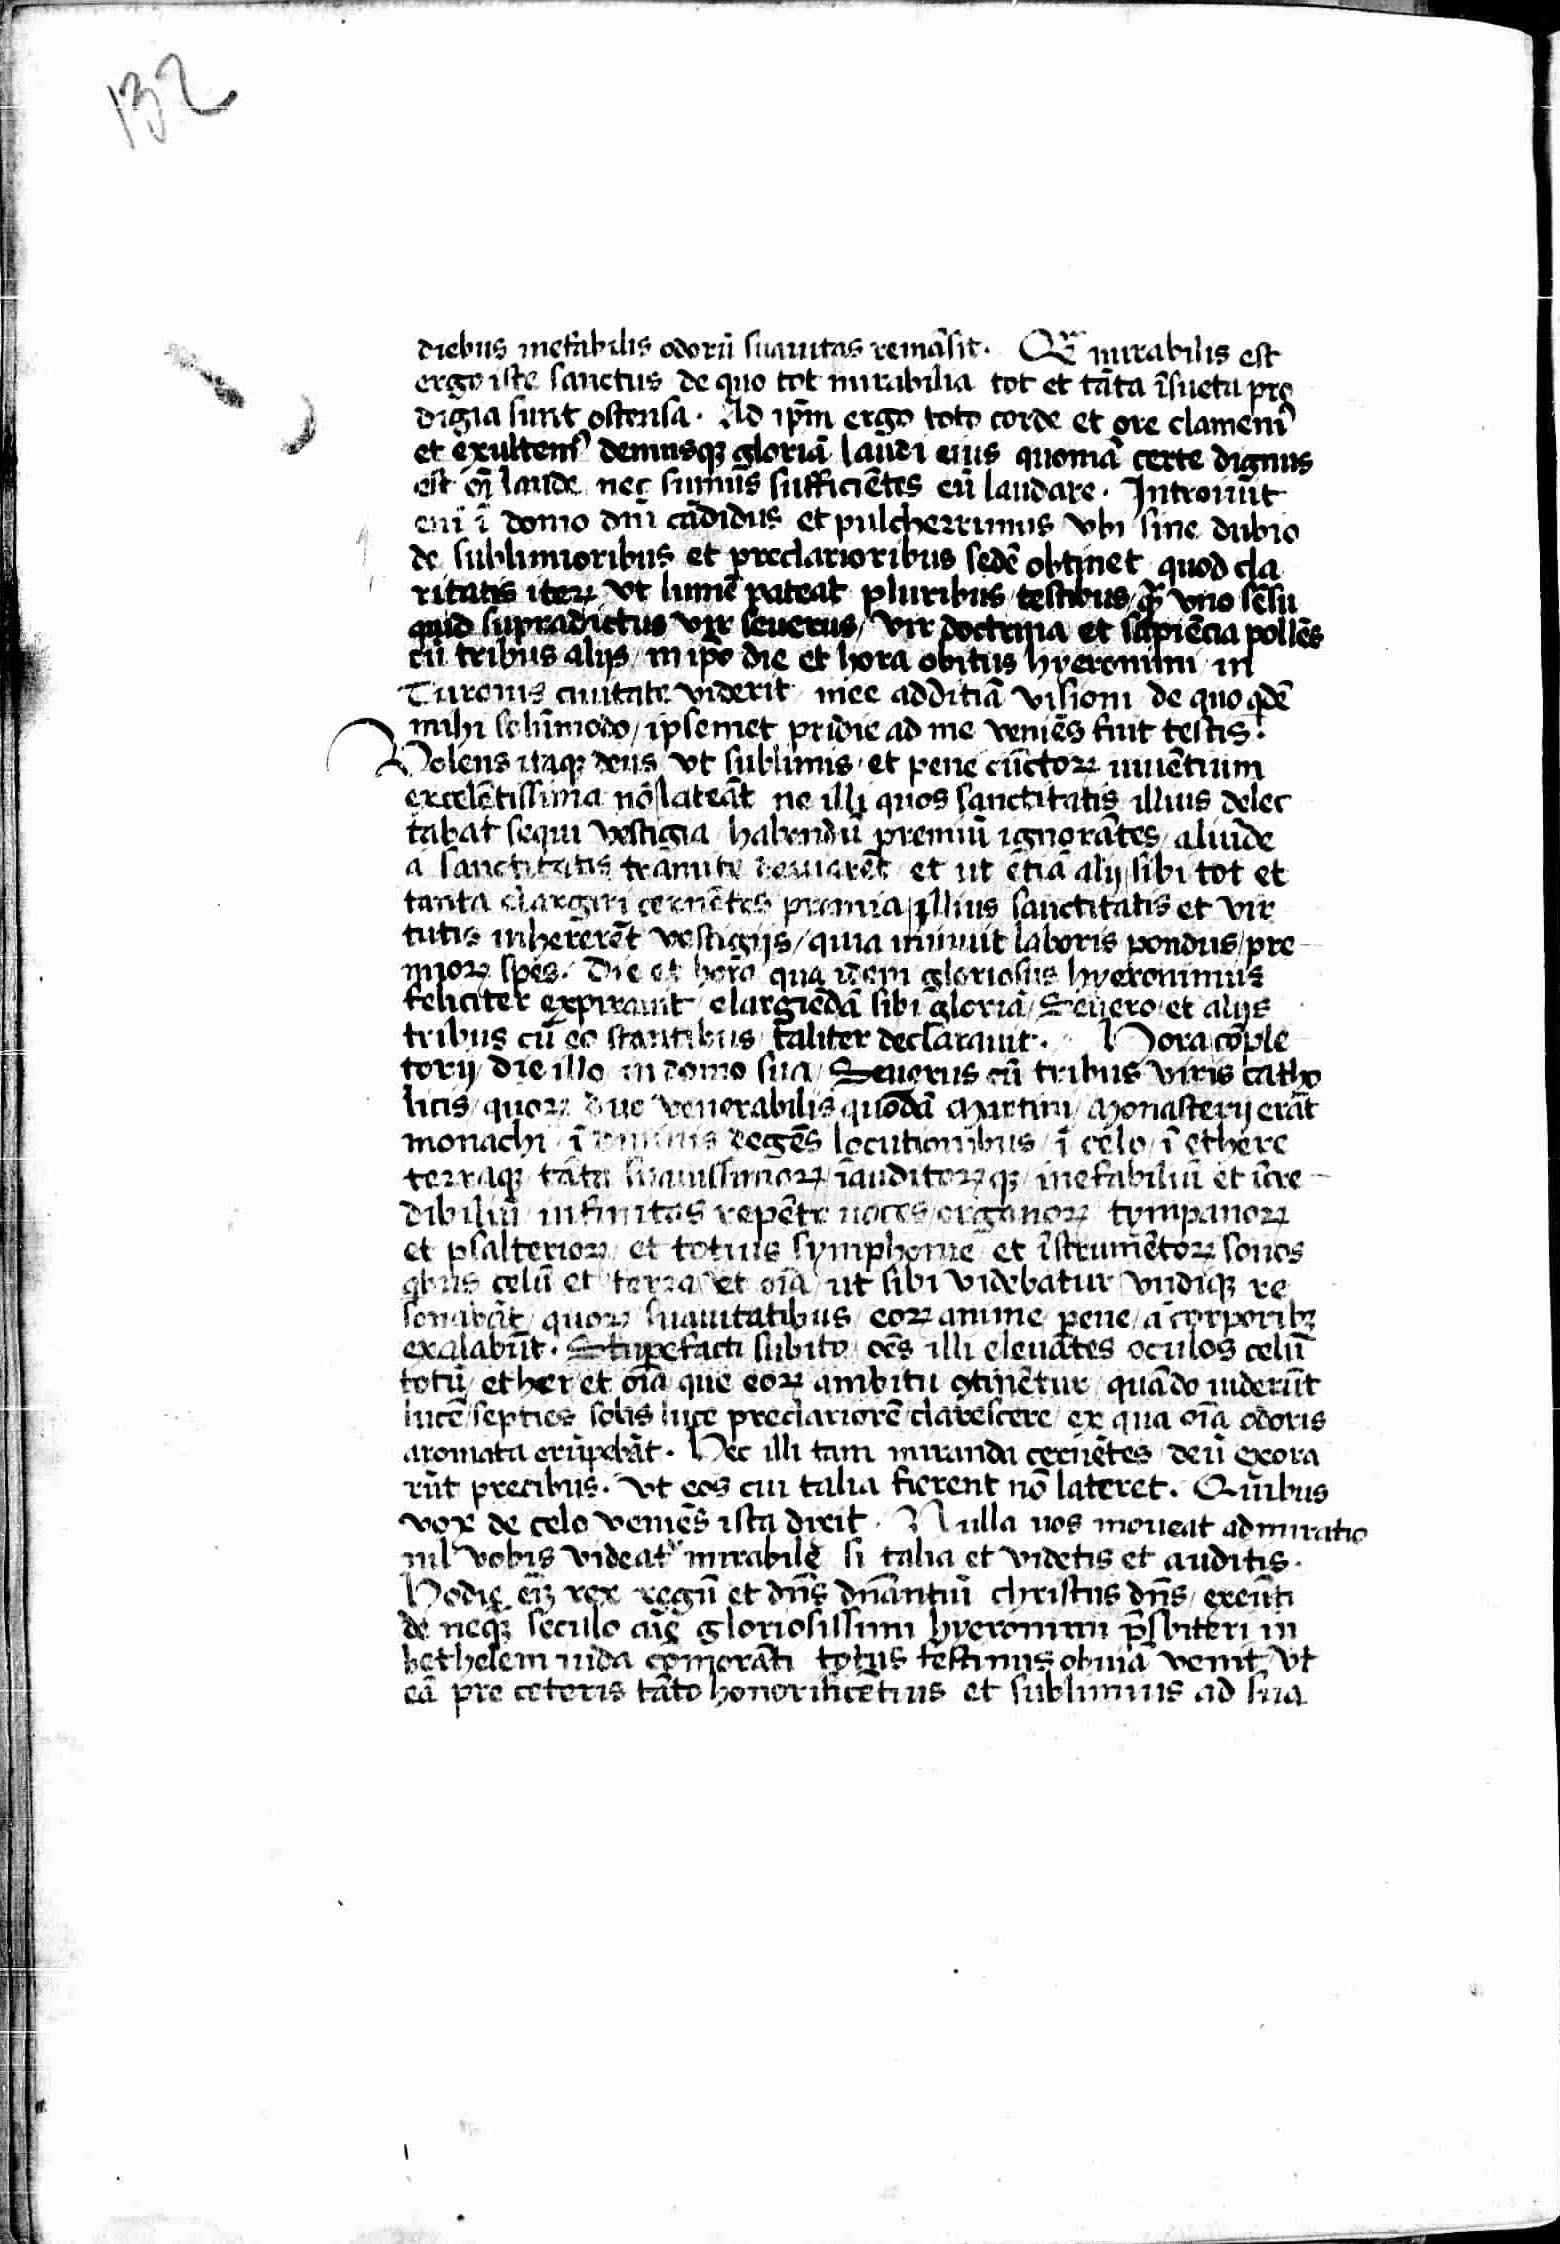 132
diebus inefabilis odorū suauitas remāsit. Qͣ mirabilis est
ergo iste sanctus de quo tot mirabilia tot et tāta īsueta pro
digia sunt ostensa. Ad ip̄m ergo toto corde et ore clamemꝰ
et exultemꝰ demusqꝫ gloriā laudi eius quoniā certe dignus
est oī laude nec sumus sufficiētes eū laudare. Introiuit
eni ī domo dn̄i cādidus et pulcherrimus vbi sine dubio
de sublimioribus et preclarioribus sedē obtinet quod cla
ritatis iteꝝ vt lumē pateat pluribus testibus qͣ vno sēsu
quid supradictus vir seuerus/ vir doctrina et sapiēcia pollēs
cū tribus alijs/ in ip̄o die et hora obitus hyeronimi in
Turonis ciuitate viderit mee additiā visioni de quo qͥdē
mihi solūmodo/ ipsemet pridie ad me veniēs fuit testis.
Volens itaqꝫ deus vt sublimis et pene cūctoꝝ iuuētium
excelētissima nō lateāt ne illi quos sanctitatis illius delec
tabat sequi vestigia habendū premiū ignorātes/ aliūde
a sanctitatis trāmite deuiarēt et ut ētiā alij sibi tot et
tanta elargiri cernētes premia illius sanctitatis et vir
tutis inhererēt vestigijs/ quia minuit laboris pondus/ pre-
mioꝝ spes. Die et hora qua idem gloriosus hyeronimus
feliciter expirauit elargiēdā sibi gloriā/ Seuero et alijs
tribus cū eo stantibus taliter declarauit. Hora cōple
torij die illo in domo sua/ Seuerus cū tribus viris catho
licis/ quoꝝ duo venerabilis quōdā Martini/ Monasterij erāt
monachi/ ī diuinis degēs locutionibus/ ī celo/ ī ethere
terraqꝫ tāta suauissimoꝝ/ īauditoꝝqꝫ/ inefabiliū et īcre-
dibiliū infinitas repēte uoces/ organoꝝ tympanoꝝ
et psalterioꝝ/ et totius symphonie et īstrumētoꝝ sonos
qͥbus celū et terra et oīa/ ut sibi videbatur vndiqꝫ re
sonabāt/ quoꝝ suauitatibus/ eoꝝ anime/ pene/ a corporibꝫ
exalabūt. Stupefacti subito oēs illi eleuātes oculos celū
totū/ ether et oīa que eoꝝ ambitu ꝯtinētur quādo uiderūt
lucē/ septies solis luce preclariorē clarescere/ ex qua oīa odoris
aromata erūpebāt. Hec illi tam miranda cernētes deū exora
rūt precibus. vt eos cui talia fierent nō lateret. Quibus
vox de celo veniēs ista dixit. Nulla uos moueat admiratio
nil vobis videatͬ mirabile si talia et videtis et auditis.
Hodie eiꝫ rex regū et dn̄s dn̄antiū christus dn̄s/ exeūti
de neqꝫ seculo aīe gloriosissimi hyeronimi p̄sbiteri in
bethelem iuda cōmorāti totus festinus obuiā venit vt
eā pre ceteris tāto honorificētius et sublimius ad sua